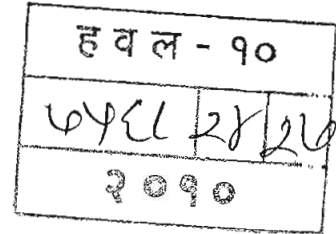 ह व ल - १०
७५६८ २४ २७
२०१०